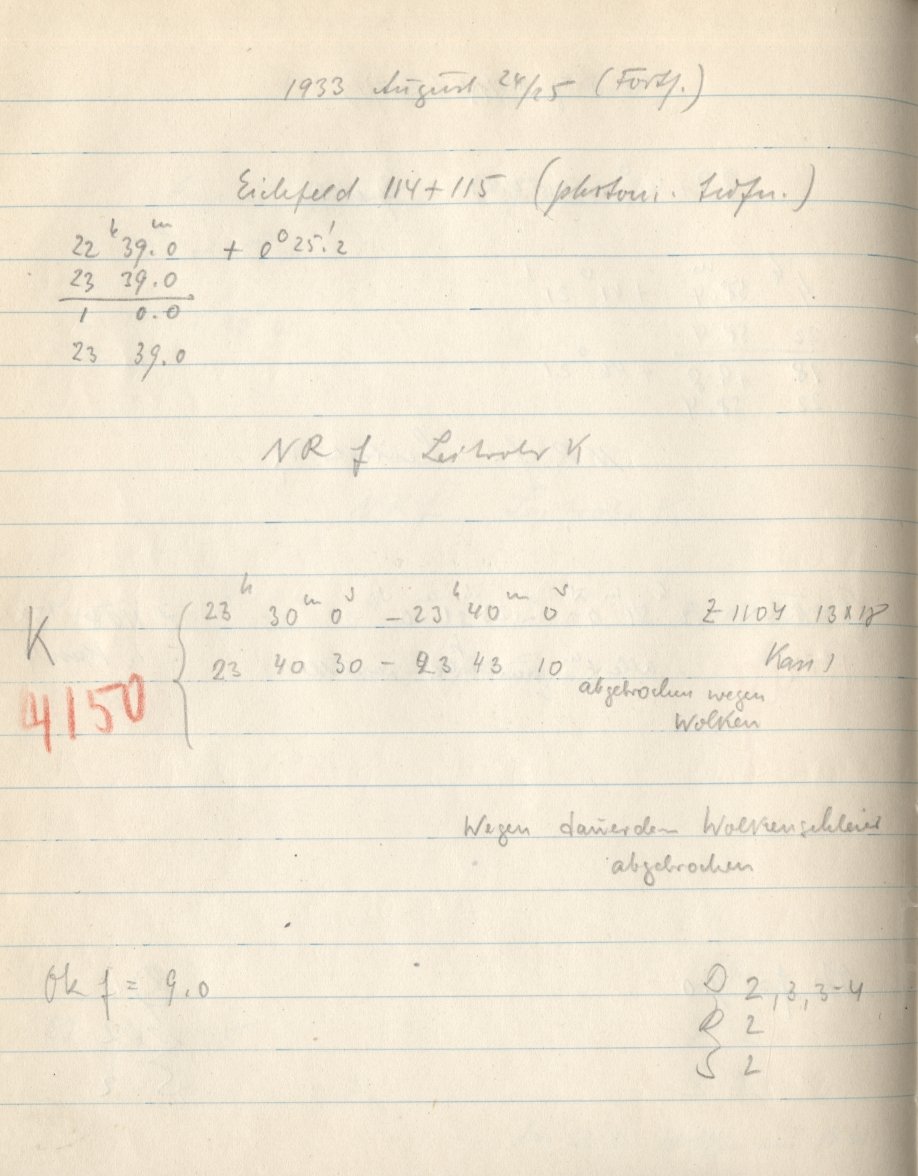 1933 August 24/25 (Forts.)
Eichfeld 114+115 (photom. Aufn.)
22ʰ 39.ᵐ0 + 0° 25.'2
23 39.0
1 0.0
23 39.0
NR f Leitrohr K
K 23ʰ 30ᵐ 0ˢ – 23ʰ 40ᵐ 0ˢ Z 1104 13x18
23 40 30 – 23 43 10 Kass 1
4150
abgebrochen wegen
Wolken
Wegen dauerdem Wolkenschleier
abgebrochen
Ok f = 9.0
D 2, 3, 3-4
R 2
S 2